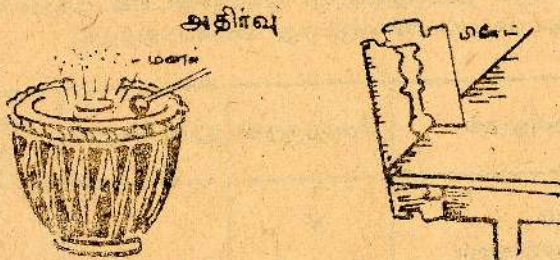 அதிர்வு
மணல்
பிளேட்